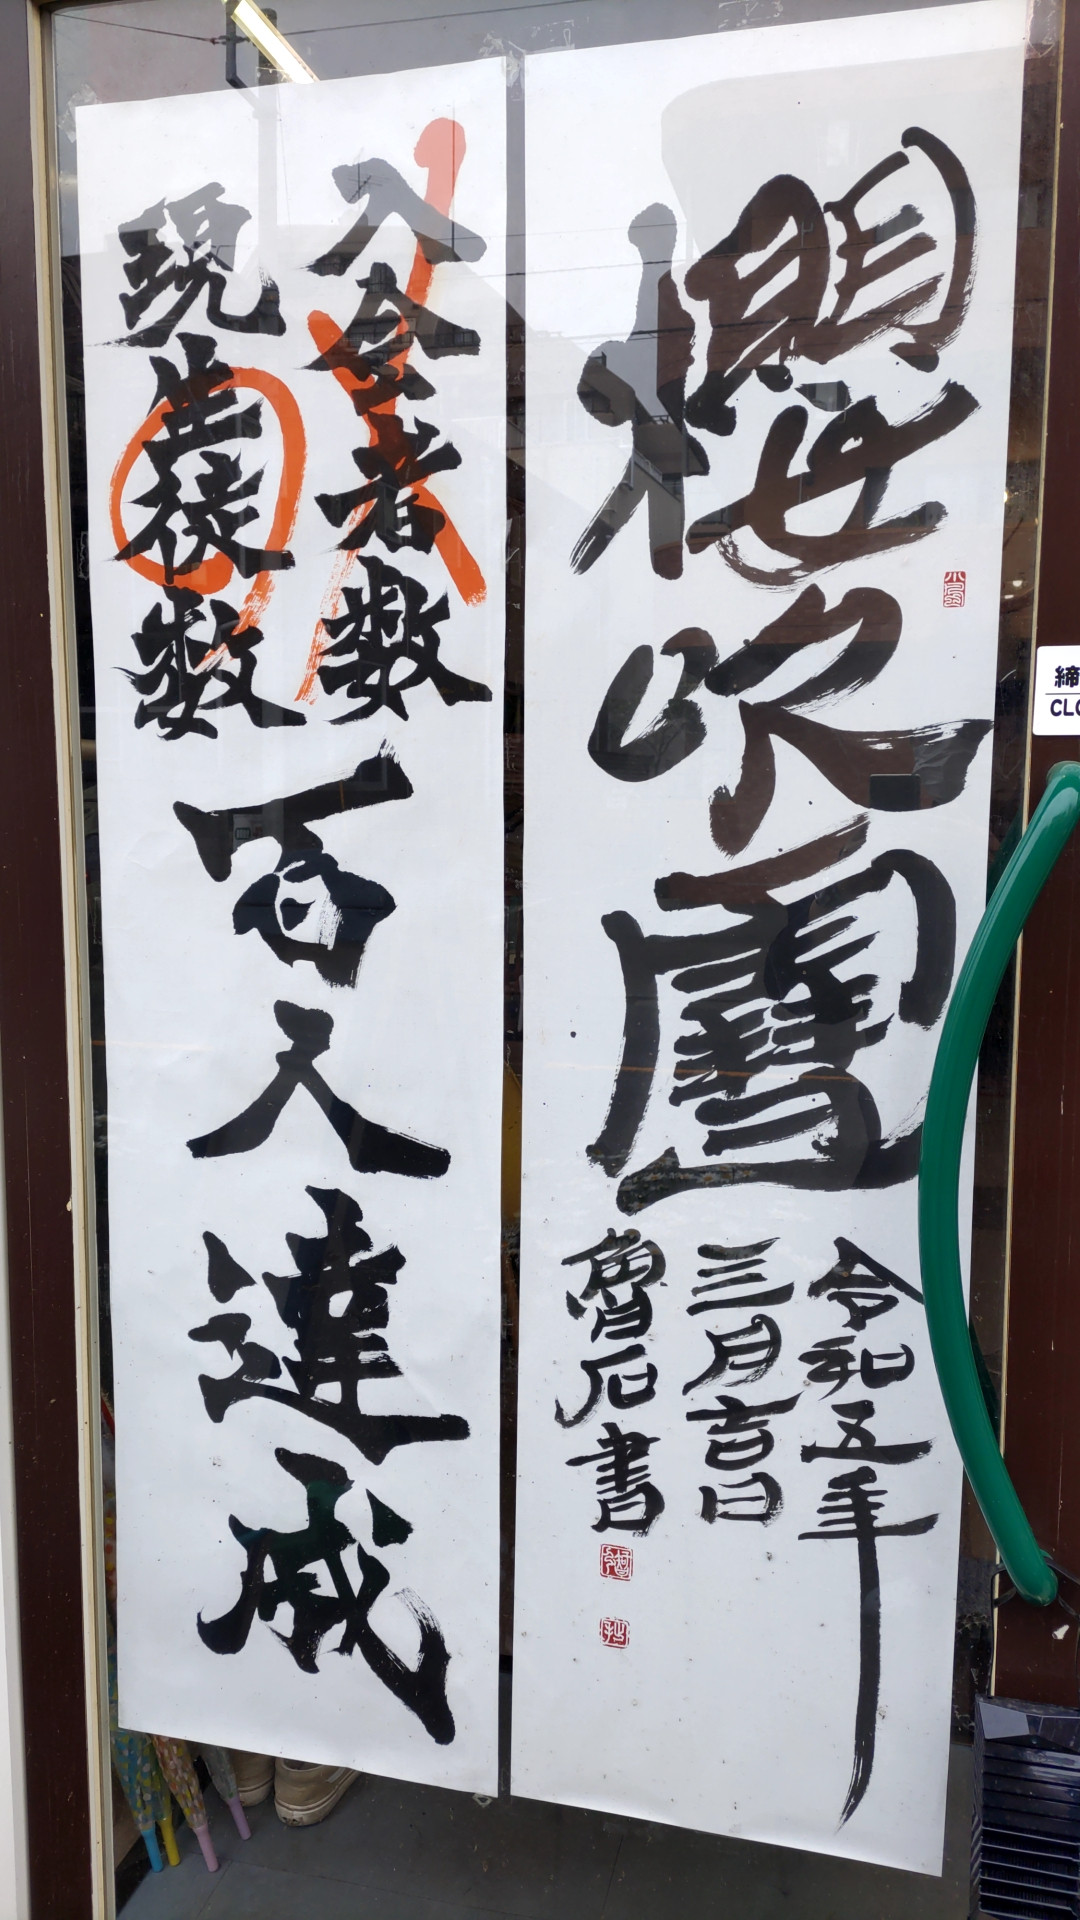 櫻吹雪
令和五年
三月吉日
魯石書
入会者数
現生徒数
百人達成
締
CLO